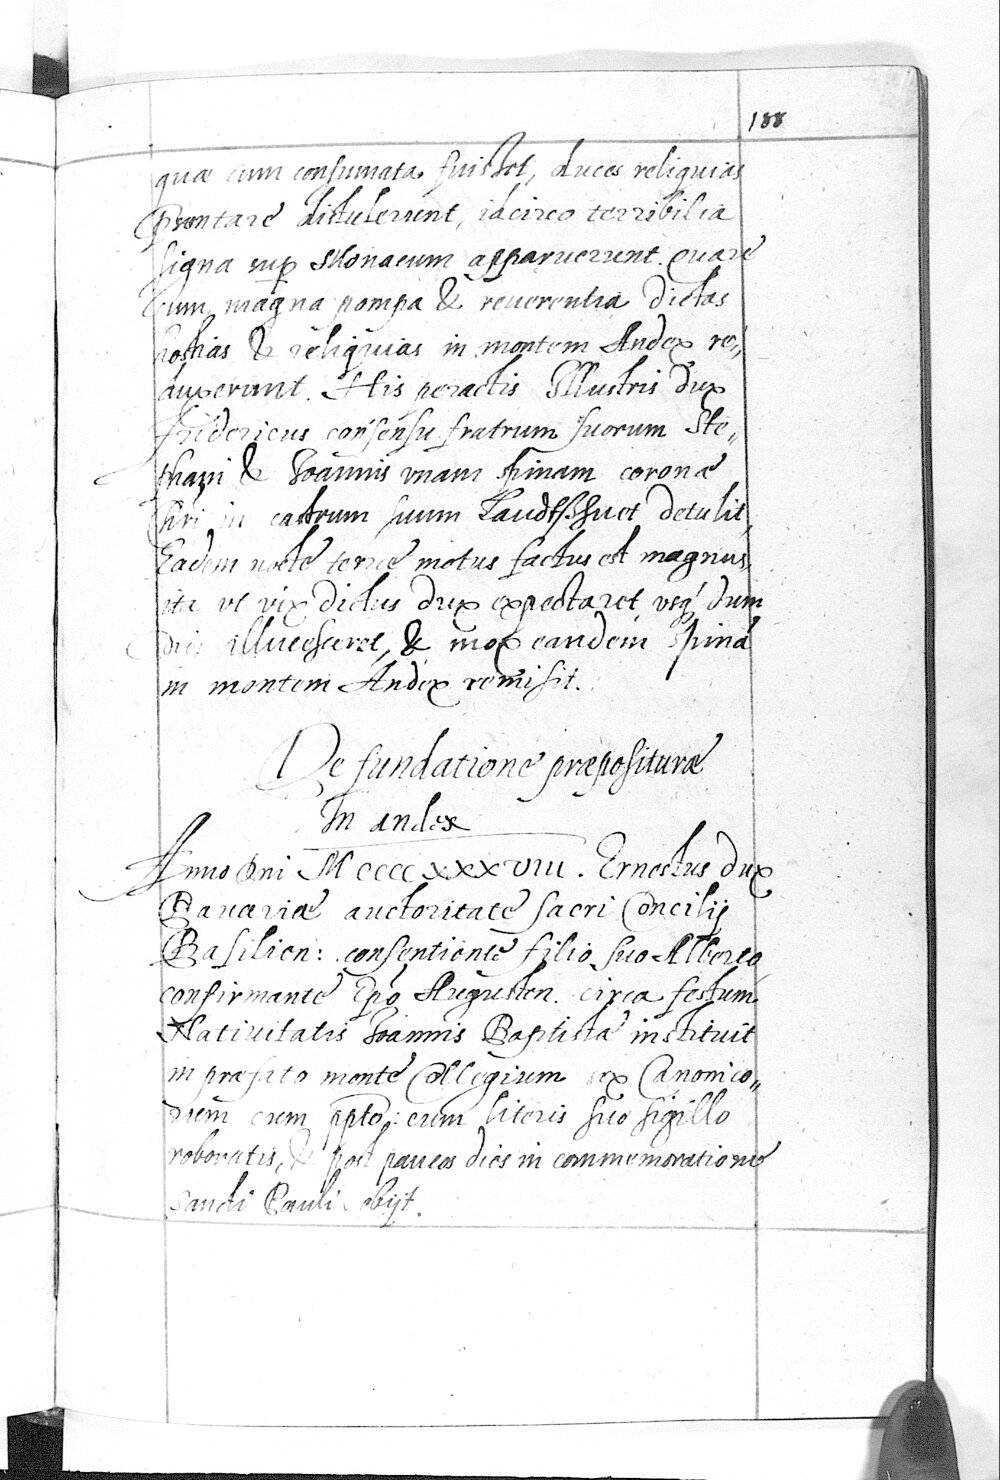 188
quæ cum consumata fuisset, duces reliquias
pntare distulerunt, idcirco terribilia
signa sup Monacum apparuerunt. quare
cum magna pompa & reuerentia dictas
hostias & reliquias in montem Andex re„
duxerunt. His peractis Illustris dux
fridericus consensu fratrum suorum Ste„
phani & Joannis vnam spinam coronæ
in castrum suum detulit,
Eadem nocte terræ motus factus est magnus,
ita vt vix dictus dux expectaret vsq dum
dies illucesceret, & mox eandem spinā
in montem Andex remisit.
De fundatione præposituræ
In andex
Anno Dni MCCCCXXXVIII. Ernestus dux
Bauariæ auctoritate sacri Concilij
Basilien: consentiente filio suo Alberto
confirmante Epo Augusten. circa festum
Natiuitatis Joannis Baptistæ instituit
in præfato monte Collegium sex Canonico„
rum cum ppto: cum literis suo sigillo
roboratis, & post paucos dies in commemoratione
sancti Pauli obijt.